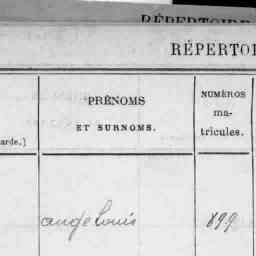 RÉPERTOIRE
RÉPERTOI
PRÉNOMS
ET SURNOMS.
NUMÉROS
ma-
tricules.
arde.)
ange Louis 899